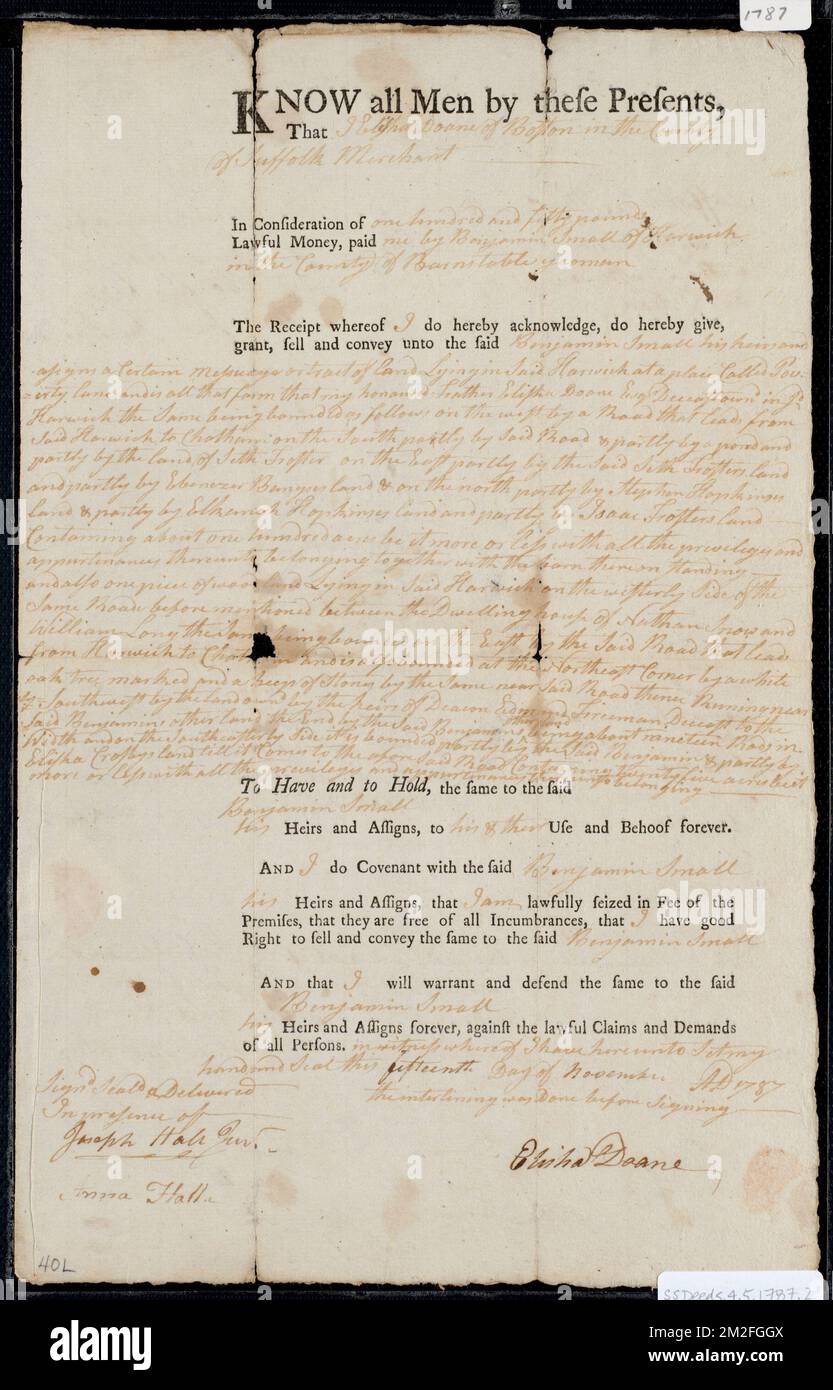 1787
KNOW all Men by theſe Preſents,
That I Elisha Doane of Boston in the County
of Suffolk Merchant
In Conſideration of one hundred and fifty pounds
Lawful Money, paid me by Benjamin Small of Harwich
in the County of Barnstable yeoman
The Receipt whereof I do hereby acknowledge, do hereby give,
grant, ſell and convey unto the ſaid Benjamin Small his heirs and
asigns a Certain mesuage or tract of land Lying in Said Harwich at a place Called Pov-
-erty land and is all that farm that my honored Father Elisha Doane Esqr Deceas'd own'd in sd
Harwich the Same being bounded as follows on the west by a Road that leads from
Said Harwich to Chatham on the South partly by Said Road & partly by a pond and
partly by the land of Seth Froster on the East partly by the Said Seth Frosters land
and partly by Ebenezer Bangses land & on the north partly by Stephen Hopkinses
land & partly by Elkanah Hopkinses land and partly by Isaac Frosters land
Containing about one hundred acres be it more or less with all the priveleges and
appurtinances thereunto belonging together with the barn there on standing
and also one piece of wood land Lying in Said Harwich on the westerly Side of the
Same Road before mentioned between the Dwelling house of Nathan Snow and
William Long the Same being bounded on the East by the Said Road that leads
from Harwich to Chatham and is also bounded at the Northeast Corner by a white
oak tree marked and a heep of Stones by the Same near Said Road thence Runing near
Southwest by the land own'd by the heirs of Deacon Edmund Freeman Deceast to the
Said Benjamins other land the End by the Said Benjamins land being about nineteen Rods in
Width and on the Southeasterly Side it is bounded partly by the Said Benjamin & partly by
Elisha Crosbys land till it Comes to the afore Said Road Containing twenty five acres be it
more or less with all the priveleges and appurtinances thereunto belonging
To Have and to Hold, the ſame to the ſaid
Benjamin Small
his Heirs and Aſſigns, to his & their Uſe and Behoof forever.
AND I do Covenant with the ſaid Benjamin Small
his Heirs and Aſſigns, that I am lawfully ſeized in Fee of the
Premiſes, that they are free of all Incumbrances, that I have good
Right to ſell and convey the ſame to the ſaid Benjamin Small
AND that I will warrant and defend the ſame to the ſaid
Benjamin Small
his Heirs and Aſſigns forever, againſt the lawful Claims and Demands
of all Perſons. in witness whereof I have here unto Set my
hand and Seal this fifteenth Day of November AD 1787
the interlining was Done before Signing
Sign'd Seal'd & Delivered
In presence of
Joseph Hall Junr.
Anna Hall
Elisha Doane
40L
SSDeeds.4.5.1787.2
alamy
Image ID: 2M2FGGX
www.alamy.com